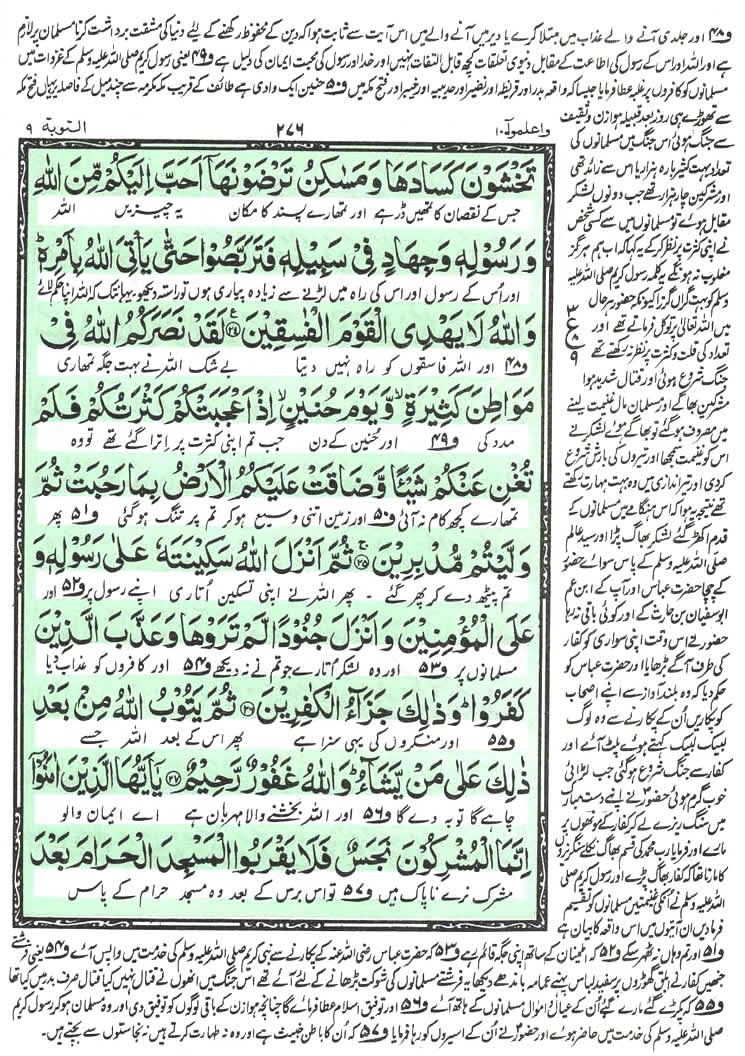 و۴۸ اور جلدی آنے والے عذاب میں مبتلا کرے یا دیر میں آنے والے میں اس آیت سے ثابت ہوا کہ دین کے محفوظ رکھنے کے لیئے دنیا کی مشقت برداشت کرنا مسلمان پر لازم
ہے اور اللہ اور اس کے رسول کی اطاعت کے مقابل دنیوی تعلقات کچھ قابل التفات نہیں اور خدا اور رسول کی محبت ایمان کی دلیل ہے و۴۹ یعنی رسول کریم صلی اللہ علیہ وسلم کے غزوات میں
مسلمانوں کو کافروں پر غلبہ عطا فرمایا جیسا کہ واقعہ بدر اور قریظہ اور نضیر اور حدیبیہ اور خیبر اور فتح مکہ میں و۵۰ حنین ایک وادی ہے طائف کے قریب مکہ مکرمہ سے چند میل کے فاصلہ پر یہاں فتح مکہ
سے تھوڑے ہی روز بعد قبیلہ ہوازن و ثقیف
سے جنگ ہوئی اس جنگ میں مسلمانوں کی
تعداد بہت کثیر بارہ ہزار یا اس سے زائد تھی
اور مشرکین چار ہزار تھے جب دونوں لشکر
مقابل ہوئے تو مسلمانوں میں سے کسی شخص
نے اپنی کثرت پر نظر کر کے یہ کہا کہ اب ہم ہرگز
مغلوب نہ ہونگے یہ کلمہ رسول کریم صلی اللہ علیہ
وسلم کو بہت گراں گزرا کیونکہ حضور ہر حال
میں اللہ تعالیٰ پر توکل فرماتے تھے اور
تعداد کی قلت و کثرت پر نظر نہ رکھتے تھے
جنگ شروع ہوئی اور قتال شدید ہوا
مشرکین بھاگے اور مسلمان مال غنیمت لینے
میں مصروف ہو گئے تو بھاگے ہوئے لشکر نے
اس کو غنیمت سمجھا اور تیروں کی بارش شروع
کر دی اور تیر اندازی میں وہ بہت مہارت رکھتے
تھے نتیجہ یہ ہوا کہ اس ہنگامے میں مسلمانوں کے
قدم اکھڑ گئے لشکر بھاگ پڑا اور سید عالم
صلی اللہ علیہ وسلم کے پاس سوائے حضور
کے چچا حضرت عباس اور آپ کے ابن عم
ابوسفیان بن حارث کے اور کوئی باقی نہ رہا
حضور نے اس وقت اپنی سواری کو کفار
کی طرف آگے بڑھایا اور حضرت عباس کو
حکم دیا کہ وہ بلند آواز سے اپنے اصحاب
کو پکاریں اُن کے پکارنے سے وہ لوگ
لبیک لبیک کہتے ہوئے پلٹ آئے اور
کفار سے جنگ شروع ہو گئی جب لڑائی
خوب گرم ہوئی حضور نے اپنے دست مبارک
میں سنگ ریزے لے کر کفار کے مونھوں پر
مارے اور فرمایا رب محمد کی قسم بھاگ نکلے سنگریزوں
کا مارنا تھا کہ کفار بھاگ پڑے اور رسول کریم صلی
اللہ علیہ وسلم نے انکی غنیمتیں مسلمانوں کو تقسیم
فرما دیں ان آیتوں میں اس واقعہ کا بیان ہے
التوبة ۹
۲۷۶
واعلموا ۱۰
تَخْشَوْنَ كَسَادَهَا وَمَسٰكِنُ تَرْضَوْنَهَاۤ اَحَبَّ اِلَيْكُمْ مِّنَ اللّٰهِ
جس کے نقصان کا تمھیں ڈر ہے اور تمھارے پسند کا مکان یہ چیزیں اللہ
وَرَسُوْلِهٖ وَجِهَادٍ فِیْ سَبِيْلِهٖ فَتَرَبَّصُوْا حَتّٰى يَاْتِیَ اللّٰهُ بِاَمْرِهٖ ؕ
اور اُس کے رسول اور اس کی راہ میں لڑنے سے زیادہ پیاری ہوں تو راستہ دیکھو یہانتک کہ اللہ اپنا حکم لائے
وَاللّٰهُ لَا يَهْدِی الْقَوْمَ الْفٰسِقِيْنَ ﴿۲۴﴾ لَقَدْ نَصَرَكُمُ اللّٰهُ فِیْ
و۴۸ اور اللہ فاسقوں کو راہ نہیں دیتا بے شک اللہ نے بہت جگہ تمھاری
مَوَاطِنَ كَثِيْرَةٍ ۙ وَّيَوْمَ حُنَيْنٍ ۙ اِذْ اَعْجَبَتْكُمْ كَثْرَتُكُمْ فَلَمْ
مدد کی و۴۹ اور حُنین کے دن جب تم اپنی کثرت پر اِترا گئے تھے تو وہ
تُغْنِ عَنْكُمْ شَيْـًٔا وَّضَاقَتْ عَلَيْكُمُ الْاَرْضُ بِمَا رَحُبَتْ ثُمَّ
تمھارے کچھ کام نہ آئی و۵۰ اور زمین اتنی وسیع ہو کر تم پر تنگ ہو گئی و۵۱ پھر
وَلَّيْتُمْ مُّدْبِرِيْنَ ﴿۲۵﴾ ثُمَّ اَنْزَلَ اللّٰهُ سَكِيْنَتَهٗ عَلٰى رَسُوْلِهٖ وَ
تم پیٹھ دے کر پھر گئے ۔ پھر اللہ نے اپنی تسکین اُتاری اپنے رسول پر و۵۲ اور
عَلَى الْمُؤْمِنِيْنَ وَاَنْزَلَ جُنُوْدًا لَّمْ تَرَوْهَا وَعَذَّبَ الَّذِيْنَ
مسلمانوں پر و۵۳ اور وہ لشکر اُتارے جو تم نے نہ دیکھے و۵۴ اور کافروں کو عذاب دیا
كَفَرُوْا ؕ وَذٰلِكَ جَزَآءُ الْكٰفِرِيْنَ ﴿۲۶﴾ ثُمَّ يَتُوْبُ اللّٰهُ مِنْۢ بَعْدِ
و۵۵ اور منکروں کی یہی سزا ہے پھر اس کے بعد اللہ جسے
ذٰلِكَ عَلٰى مَنْ يَّشَآءُ ؕ وَاللّٰهُ غَفُوْرٌ رَّحِيْمٌ ﴿۲۷﴾ يٰۤاَيُّهَا الَّذِيْنَ اٰمَنُوْۤا
چاہے گا توبہ دے گا و۵۶ اور اللہ بخشنے والا مہربان ہے اے ایمان والو
اِنَّمَا الْمُشْرِكُوْنَ نَجَسٌ فَلَا يَقْرَبُوا الْمَسْجِدَ الْحَرَامَ بَعْدَ
مشرک نرے ناپاک ہیں و۵۷ تو اس برس کے بعد وہ مسجد حرام کے پاس
و۵۱ اور تم وہاں نہ ٹھہر سکے و۵۲ کہ اطمینان کے ساتھ اپنی جگہ قائم رہے و۵۳ کہ حضرت عباس رضی اللہ عنہ کے پکارنے سے نبی کریم صلی اللہ علیہ وسلم کی خدمت میں واپس آئے و۵۴ یعنی فرشتے
جنھیں کفار نے ابلق گھوڑوں پر سفید لباس پہنے عمامہ باندھے دیکھا یہ فرشتے مسلمانوں کی شوکت بڑھانے کے لئے آئے تھے اس جنگ میں انھوں نے قتال نہیں کیا قتال صرف بدر میں کیا تھا
و۵۵ کہ پکڑے گئے مارے گئے اُن کے عیال و اموال مسلمانوں کے ہاتھ آئے و۵۶ اور توفیق اسلام عطا فرمائے گا چنانچہ ہوازن کے باقی لوگوں کو توفیق دی اور وہ مسلمان ہو کر رسول کریم
صلی اللہ علیہ وسلم کی خدمت میں حاضر ہوئے اور حضور نے اُن کے اسیروں کو رہا فرما دیا و۵۷ کہ اُن کا باطن خبیث ہے اور وہ نہ طہارت کرتے ہیں نہ نجاستوں سے بچتے ہیں۔